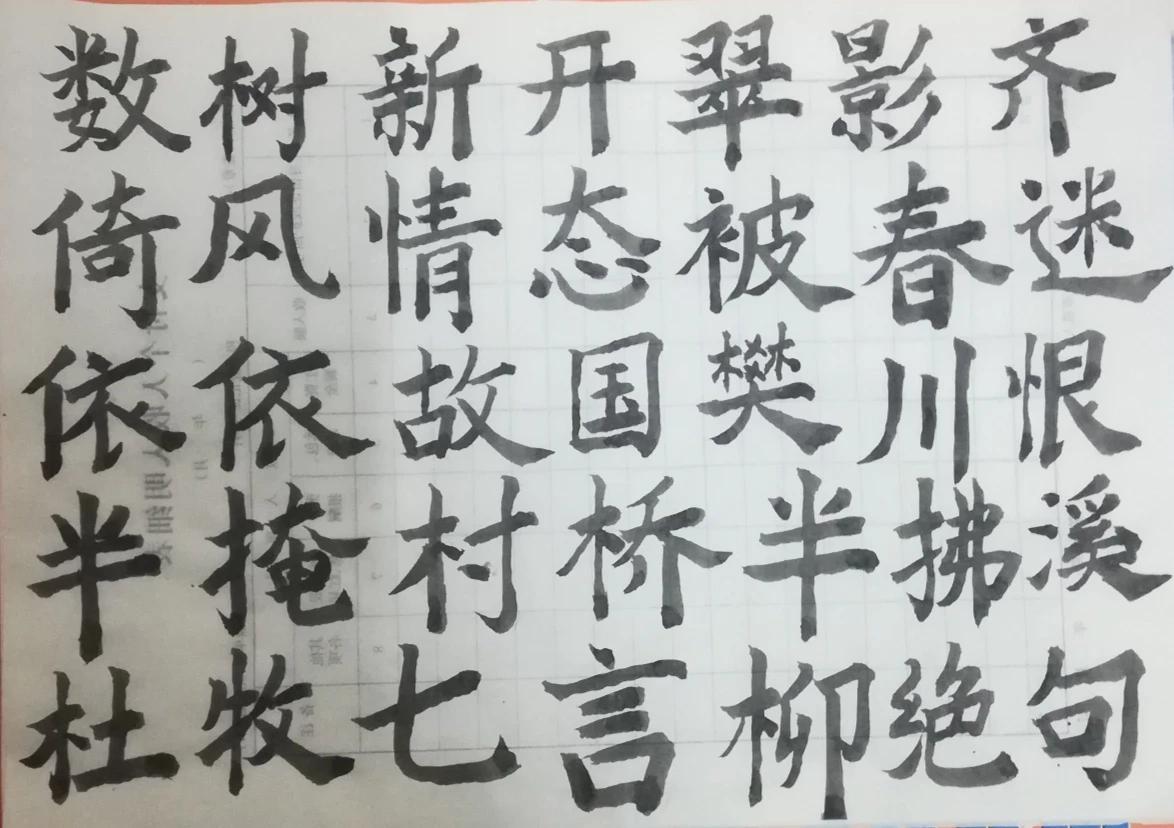 数树新开翠影齐
倚风情态被春迷
依依故国樊川恨
半掩村桥半拂溪
杜牧七言柳绝句